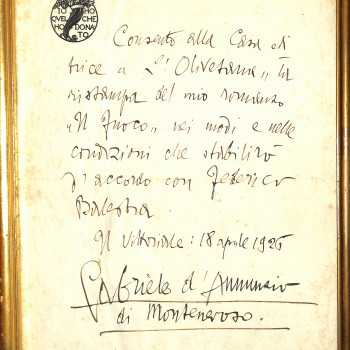 IO HO
QVEL CHE
HO DONA
TO
Consento alla Casa edi
trice a "L'Olivetana" la
ristampa del mio romanzo
"Il Fuoco" nei modi e nelle
condizioni che stabilirò
d'accordo con Federico
Balestra.
Il Vittoriale: 18 aprile 1926
Gabriele d'Annunzio
di Montenevoso.